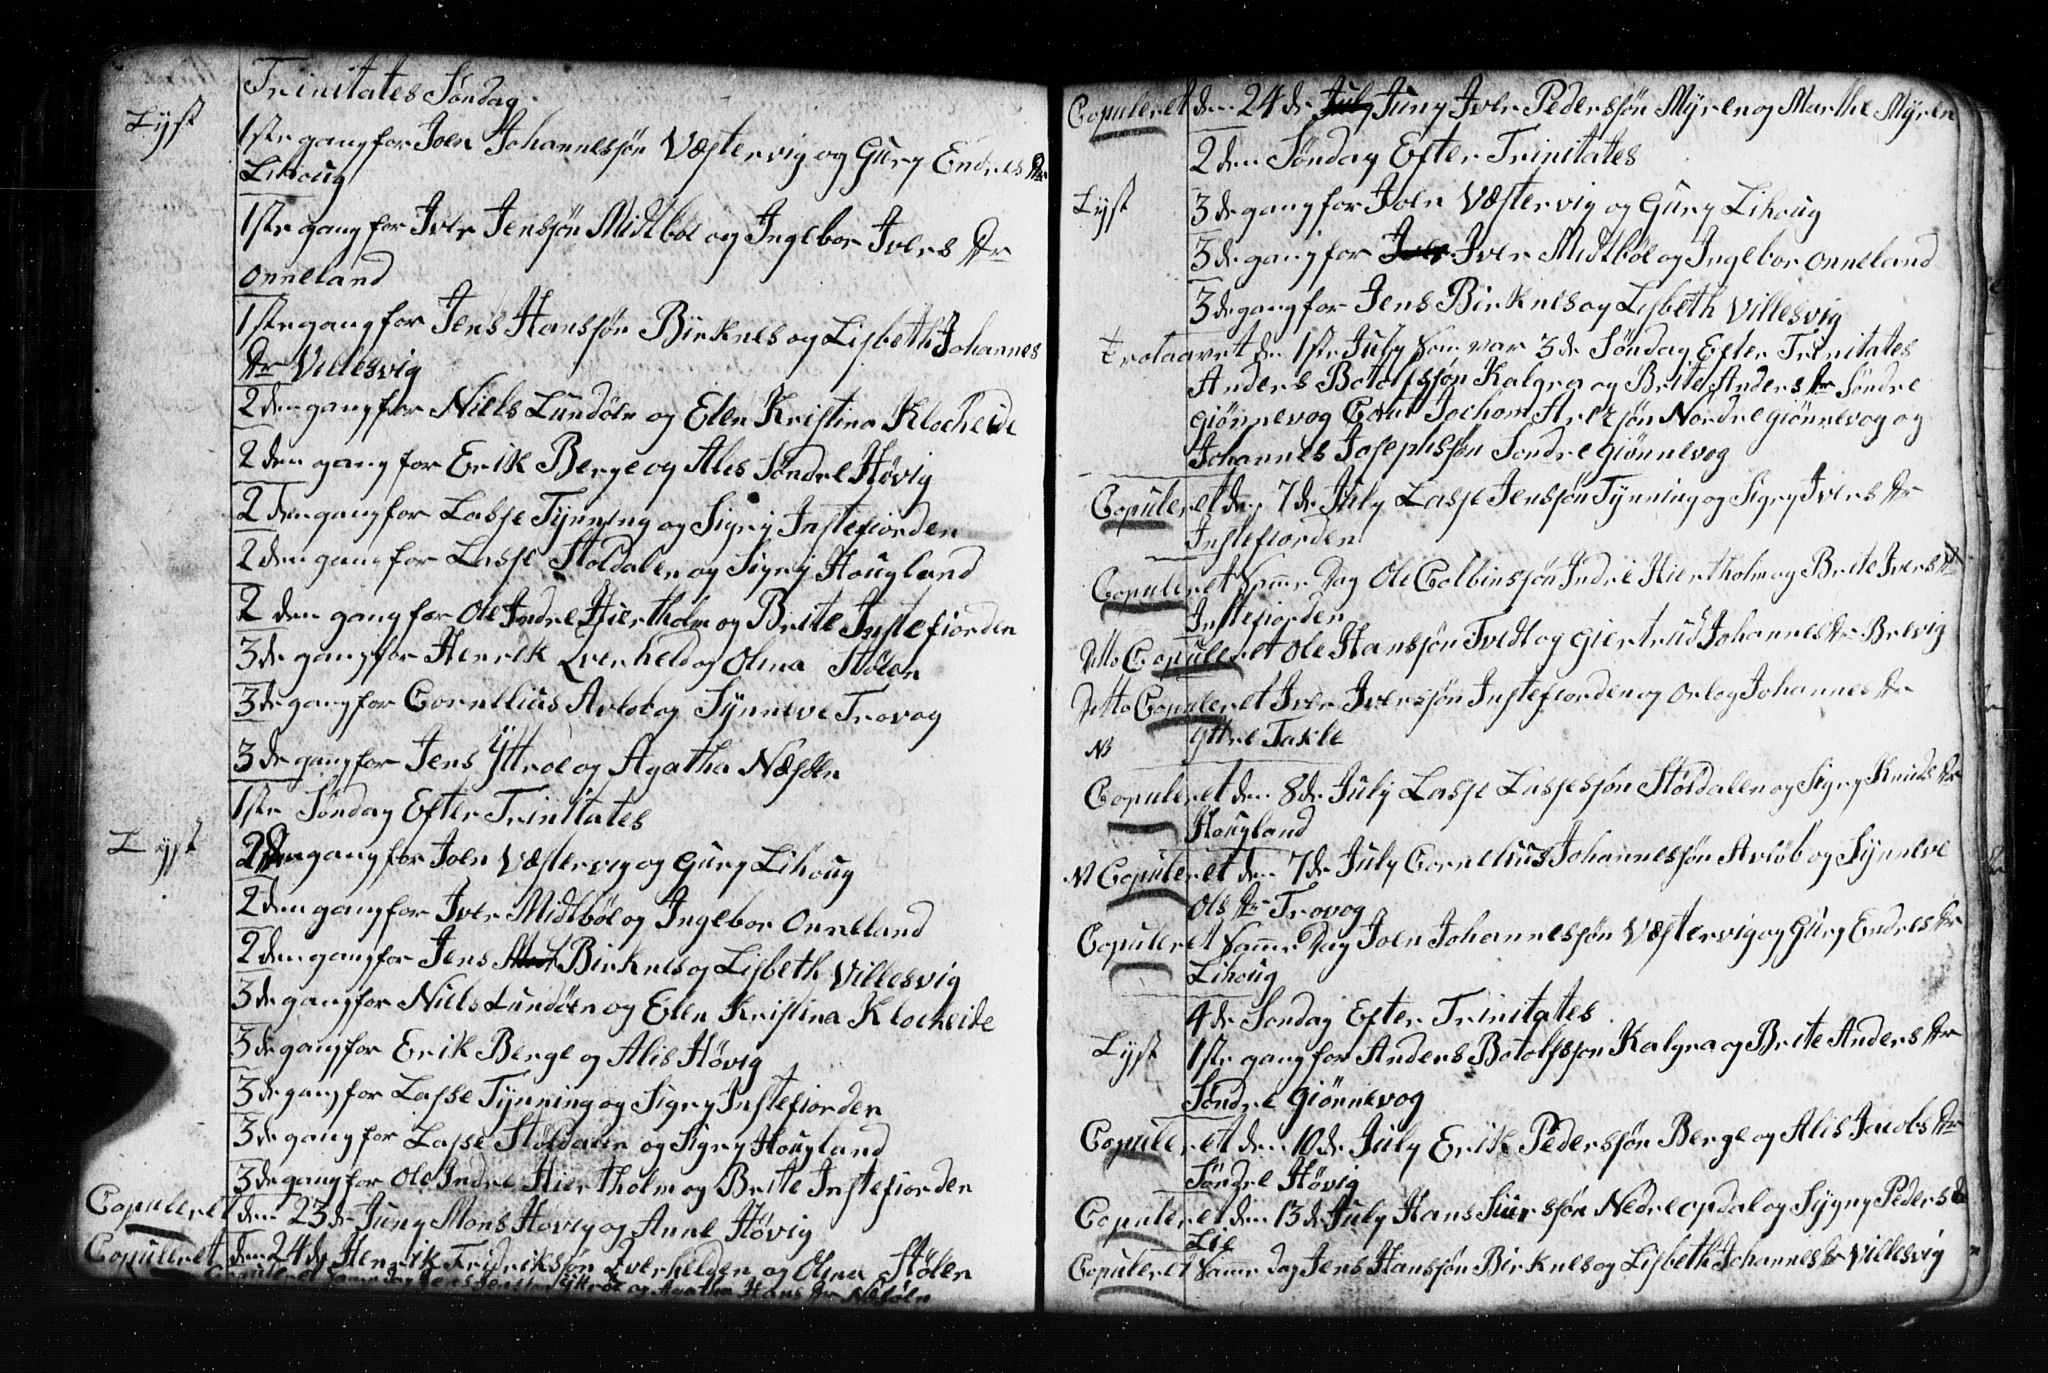 Trinitates Søndag
Lyst 1ste gang for Joen Johannessøn Væstervig og Gury Endres Dtr
Lihoug
1ste gang for Iver Jenssøn Midtbøe og Ingebor Ivers Dtr
Onneland
1ste gang for Jens Hanssøn Birknes og Lisbeth Johannes
Dtr Villesvig
2den gang for Niels Lundøen og Elen Kristina Klocheide
2den gang for Erik Berge og Alis Søndre Høvig
2den gang for Lasse Tynning og Sigry Instefiorden
2den gang for Lasse Støldalen og Sigry Hougland
2den gang for Ole Indre Hiertholm og Brite Instefiorden
3de gang for Henrik Qverheld og Olina Stølen
3de gang for Cornellius Avløb og Synneve Trovog
3de gang for Jens Yttrøe og Agatha Næssen
1ste Søndag Efter Trinitates
Lyst 2den gang for Joen Væstervig og Gury Lihoug
2den gang for Iver Midtbøe og Ingebor Onneland
2den gang for Jens Birknes og Lisbeth Villesvig
3de gang for Niels Lundøen og Elen Kristina Klocheide
3de gang for Erik Berge og Alis Høvig
3de gang for Lasse Tynning og Sigry Instefiorden
3de gang for Lasse Støldalen og Sigry Hougland
3de gang for Ole Indre Hiertholm og Brite Instefiorden
Copuleret den 23de Juny Mons Høvig og Anne Høvig
Copulleret den 24de Henrik Fridrikssøn Qverhelden og Olina Stølen
Copuleret Samme dag Jens Jenssøn Yttrøe og Agatha Hans Dtr
Copuleret den 24de July Juny Iver Pederssøn Myren og Marthe Myren
2den Søndag Efter Trinitates
Lyst 3de gang for Joen Væstervig og Gury Lihoug
3de gang for Iver Iver Midtbøe og Ingebor Onneland
3de gang for Jens Birknes og Lisbeth Villesvig
trolaavet den 1ste July Som var 3de Søndag Efter Trinitates
Anders Botolfssøn Kalgra og Brite Anders Dtr Søndre
Giønnevog Jochom Nordre Giønnevog og
Johannes Josephssøn Sondre Giønnevog
Copuleret den 7de July Lasse Jenssøn Tynning og Sigry Ivers Dtr
Instefiorden
Copuleret Samme Dag Ole Colbinssøn Indre Hiertholm og Brite Ivers Dtr
Instefiorden
Ditto Copuleret Ole Hanssøn Tvedt og Giertrud Johannes Dtr Brevig
Ditto Copuleret Iver Iverssøn Instefiorden og Orlog Johannes Dtr
NB Yttre Takle
Copuleret den 8de July Lasse Lassesøn Støldalen og Sigry Knuds Dtr
Hougland
NB Copuleret den 7de July Cornelius Johannessøn Avløb og Synneve
Ols Dtr Trovog
Copuleret Samme Dag Joen Johannessøn Væstervig og Gury Endres Dtr
Lihoug
4de Sondag Efter Trinitates
Lyst 1ste gang for Anders Botolfssøn Kalgra og Brite Anders Dtr
Søndre Giønnevog
Copuleret den 10de July Erik Pederssøn Berge og Alis Jacobs Dtr
Søndre Høvig
Copuleret den 13de July Hans Siurssøn Nedre Opdal og Sygny Peders D
Lie
Copuleret Samme dag Jens Hanssøn Birknes og Lisbeth Johannes Dtr Villesvig